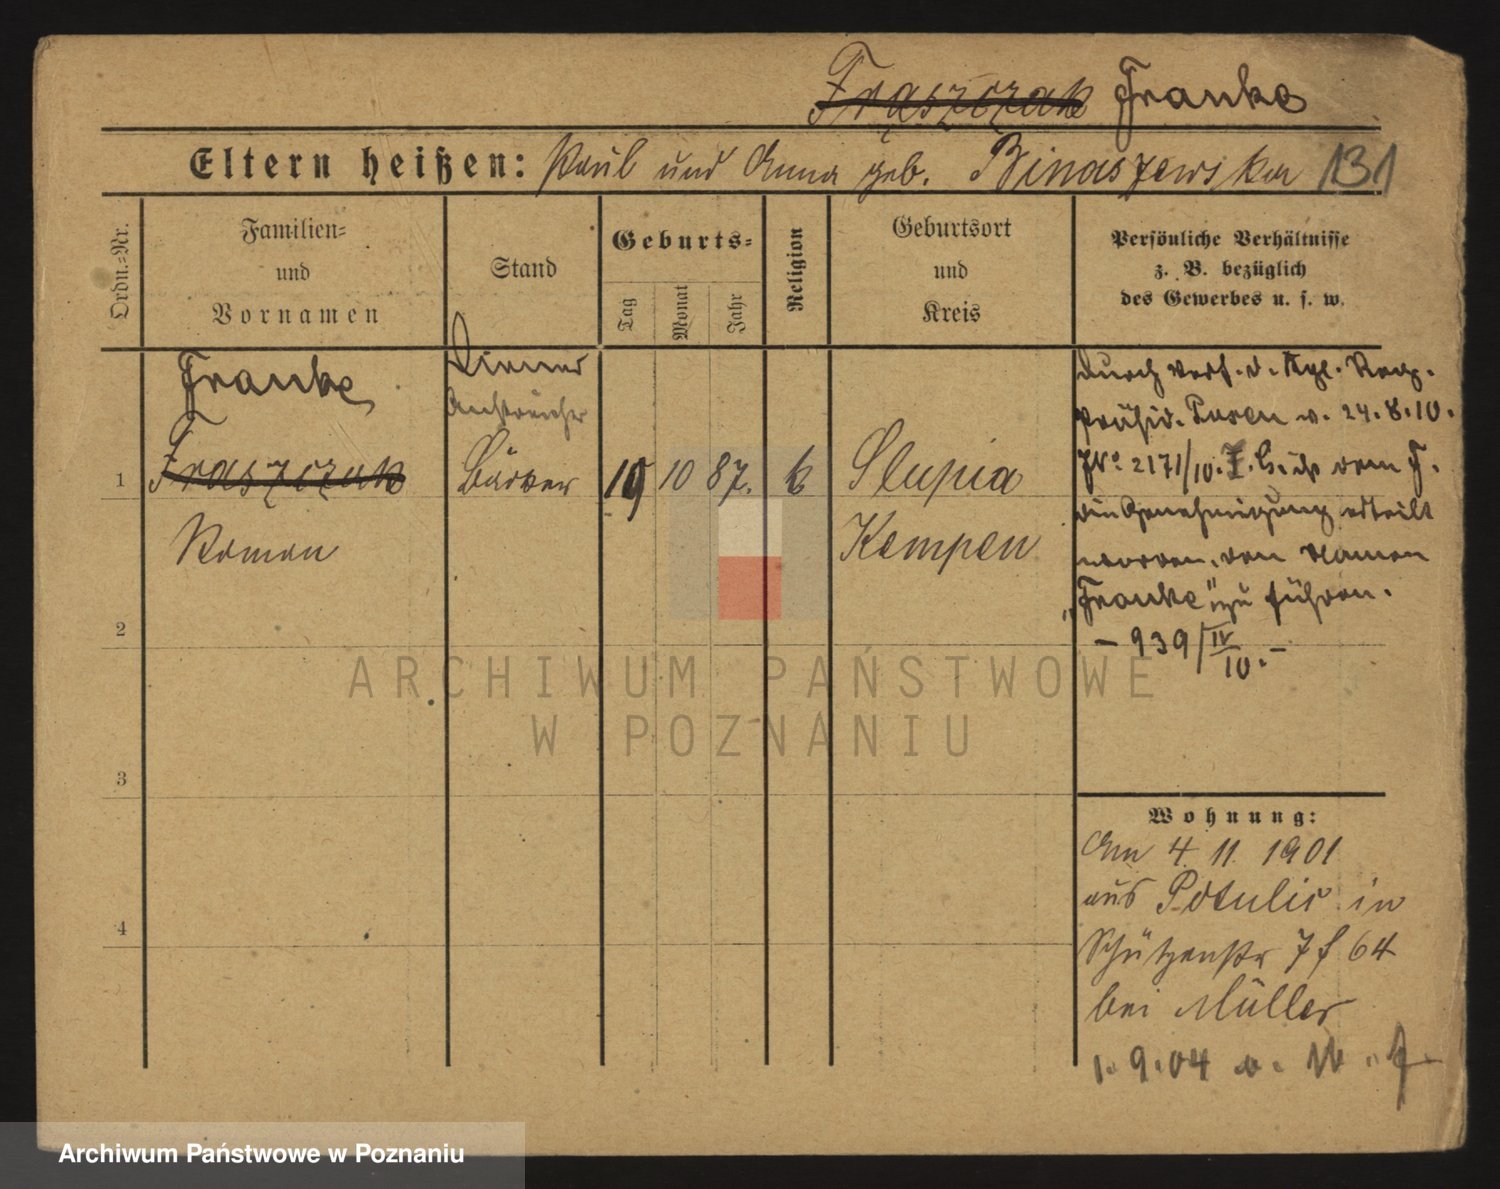 Frąszczak Franke
Eltern heißen: Paul und Anna geb. Binaszewska 131
Ordn.-Nr.
Familien-
und
Vornamen
Stand
Geburts-
Tag
Monat
Jahr
Religion
Geburtsort
und
Kreis
Persönliche Verhältnisse
z. B. bezüglich
des Gewerbes u. s. w.
Franke
1 Fraszczak
Roman
Diener
Anstreicher
Bäcker
19 10 87. k
Slupia
Kempen
durch Verf. d. Kgl. Reg.
Präsid. Posen v. 24.8.10.
No 2171/10. I. ist dem F.
die Genehmigung erteilt
worden, den Namen
„Franke" zu führen.
- 939/IV
10. -
2
3
4
Wohnung:
Am 4 11 1901
aus Potulic in
Schützenstr 7 f 64
bei Müller
1.9.04
ARCHIWUM PAŃSTWOWE
W POZNANIU
Archiwum Państwowe w Poznaniu